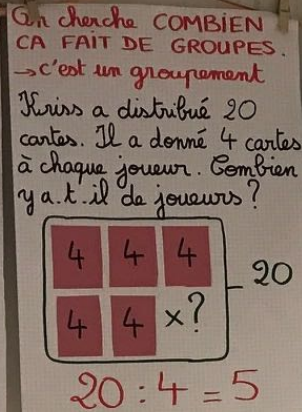 On cherche COMBIEN
CA FAIT DE GROUPES.
→ c'est un groupement
Kriss a distribué 20
cartes. Il a donné 4 cartes
à chaque joueur. Combien
y a.t.il de joueurs ?
4 4 4
20
4 4 x?
20 : 4 = 5